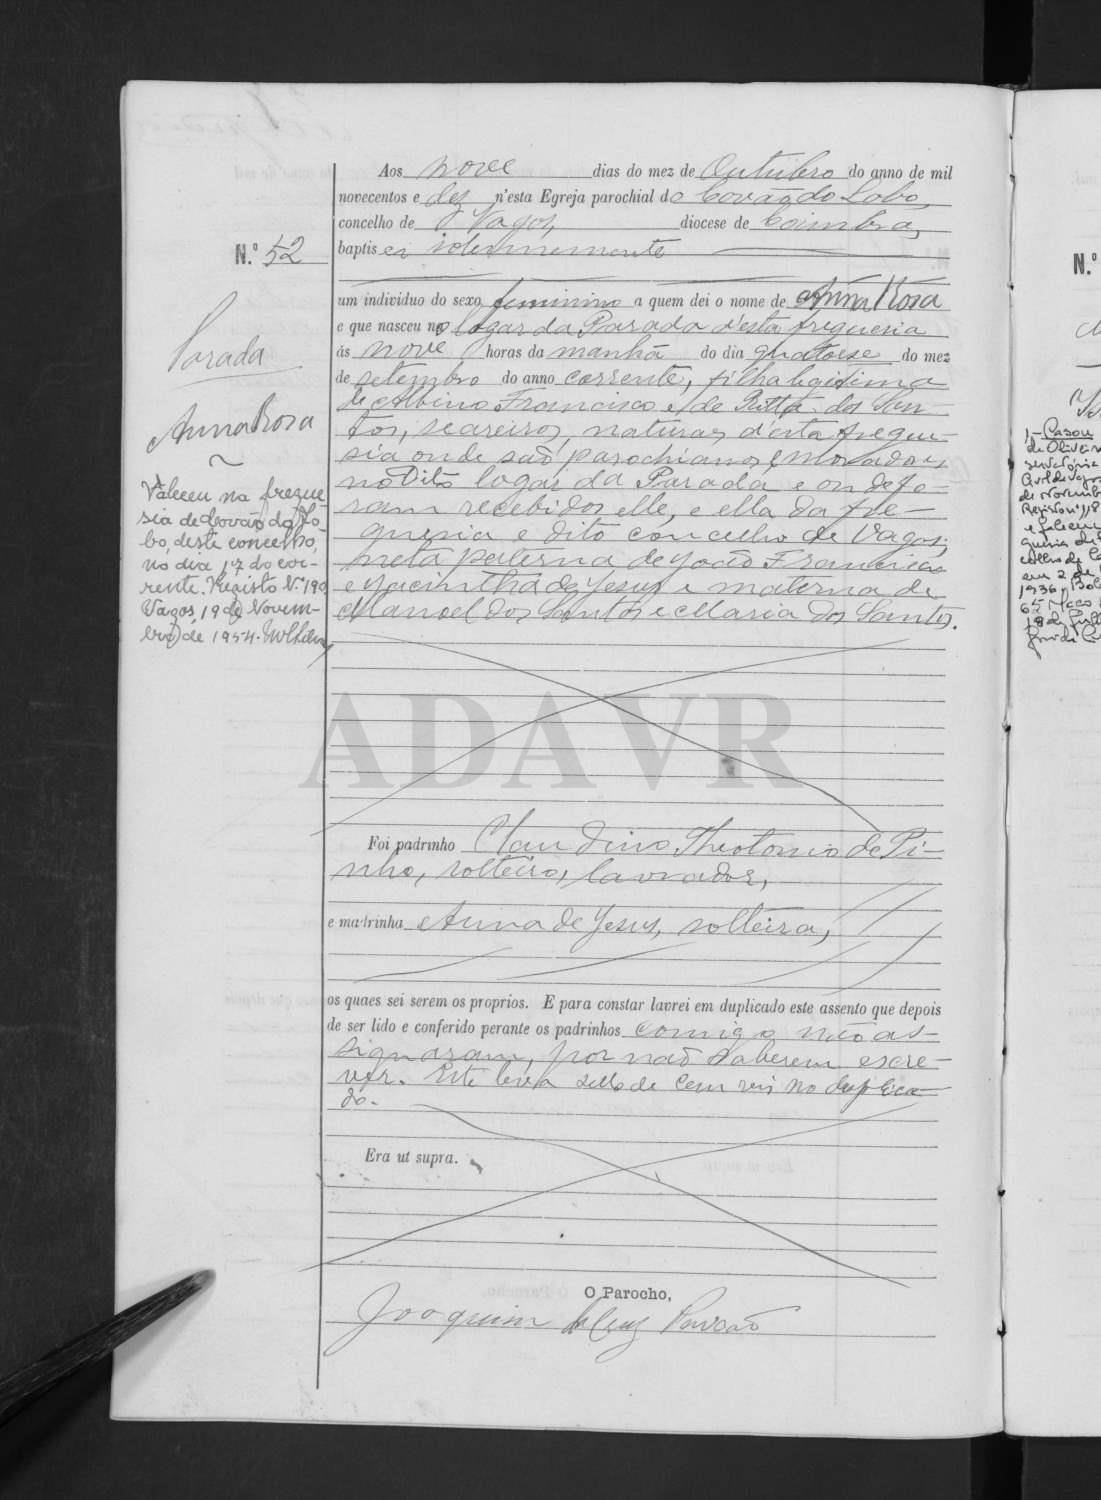 Aos nove dias do mez de Outubro do anno de mil
novecentos e dez n'esta Egreja parochial do Covão do Lobo,
concelho de Vagos, diocese de Coimbra,
N.º 52
baptisei solemnemente
um individuo do sexo feminino a quem dei o nome de Anna Rosa
e que nasceu no logar da Parada d'esta freguesia
ás nove horas da manhã do dia quatorse do mez
de setembro do anno corrente, filha legitima
de Albino Francisco e de Ritta dos San-
tos, seareiros, naturaes d'esta fregue-
sia onde são parochianos e moradores
no dito logar da Parada e onde fo-
ram recebidos elle, e ella da fre-
guesia e dito concelho de Vagos;
neta paterna de João Francisco
e Jacintha de Jesus e materna de
Manoel dos Santos e Maria dos Santos.
Parada
Anna Rosa
Faleceu na fregue
sia de Covão do Lo-
bo, deste concelho,
no dia 17 do cor-
rente. Registo Nº 190
Vagos, 19 de Novem-
bro de 1954.
ADAVR
Foi padrinho Claudino Theotonio de Pi-
nho, solteiro, lavrador,
e madrinha Anna de Jesus, solteira,
os quaes sei serem os proprios. E para constar lavrei em duplicado este assento que depois
de ser lido e conferido perante os padrinhos comigo não as-
signaram, por não saberem escre-
ver. Este leva sello de cem reis no duplica-
do.
Era ut supra.
O Parocho,
Joaquim da Cruz
N.º
1-Casou